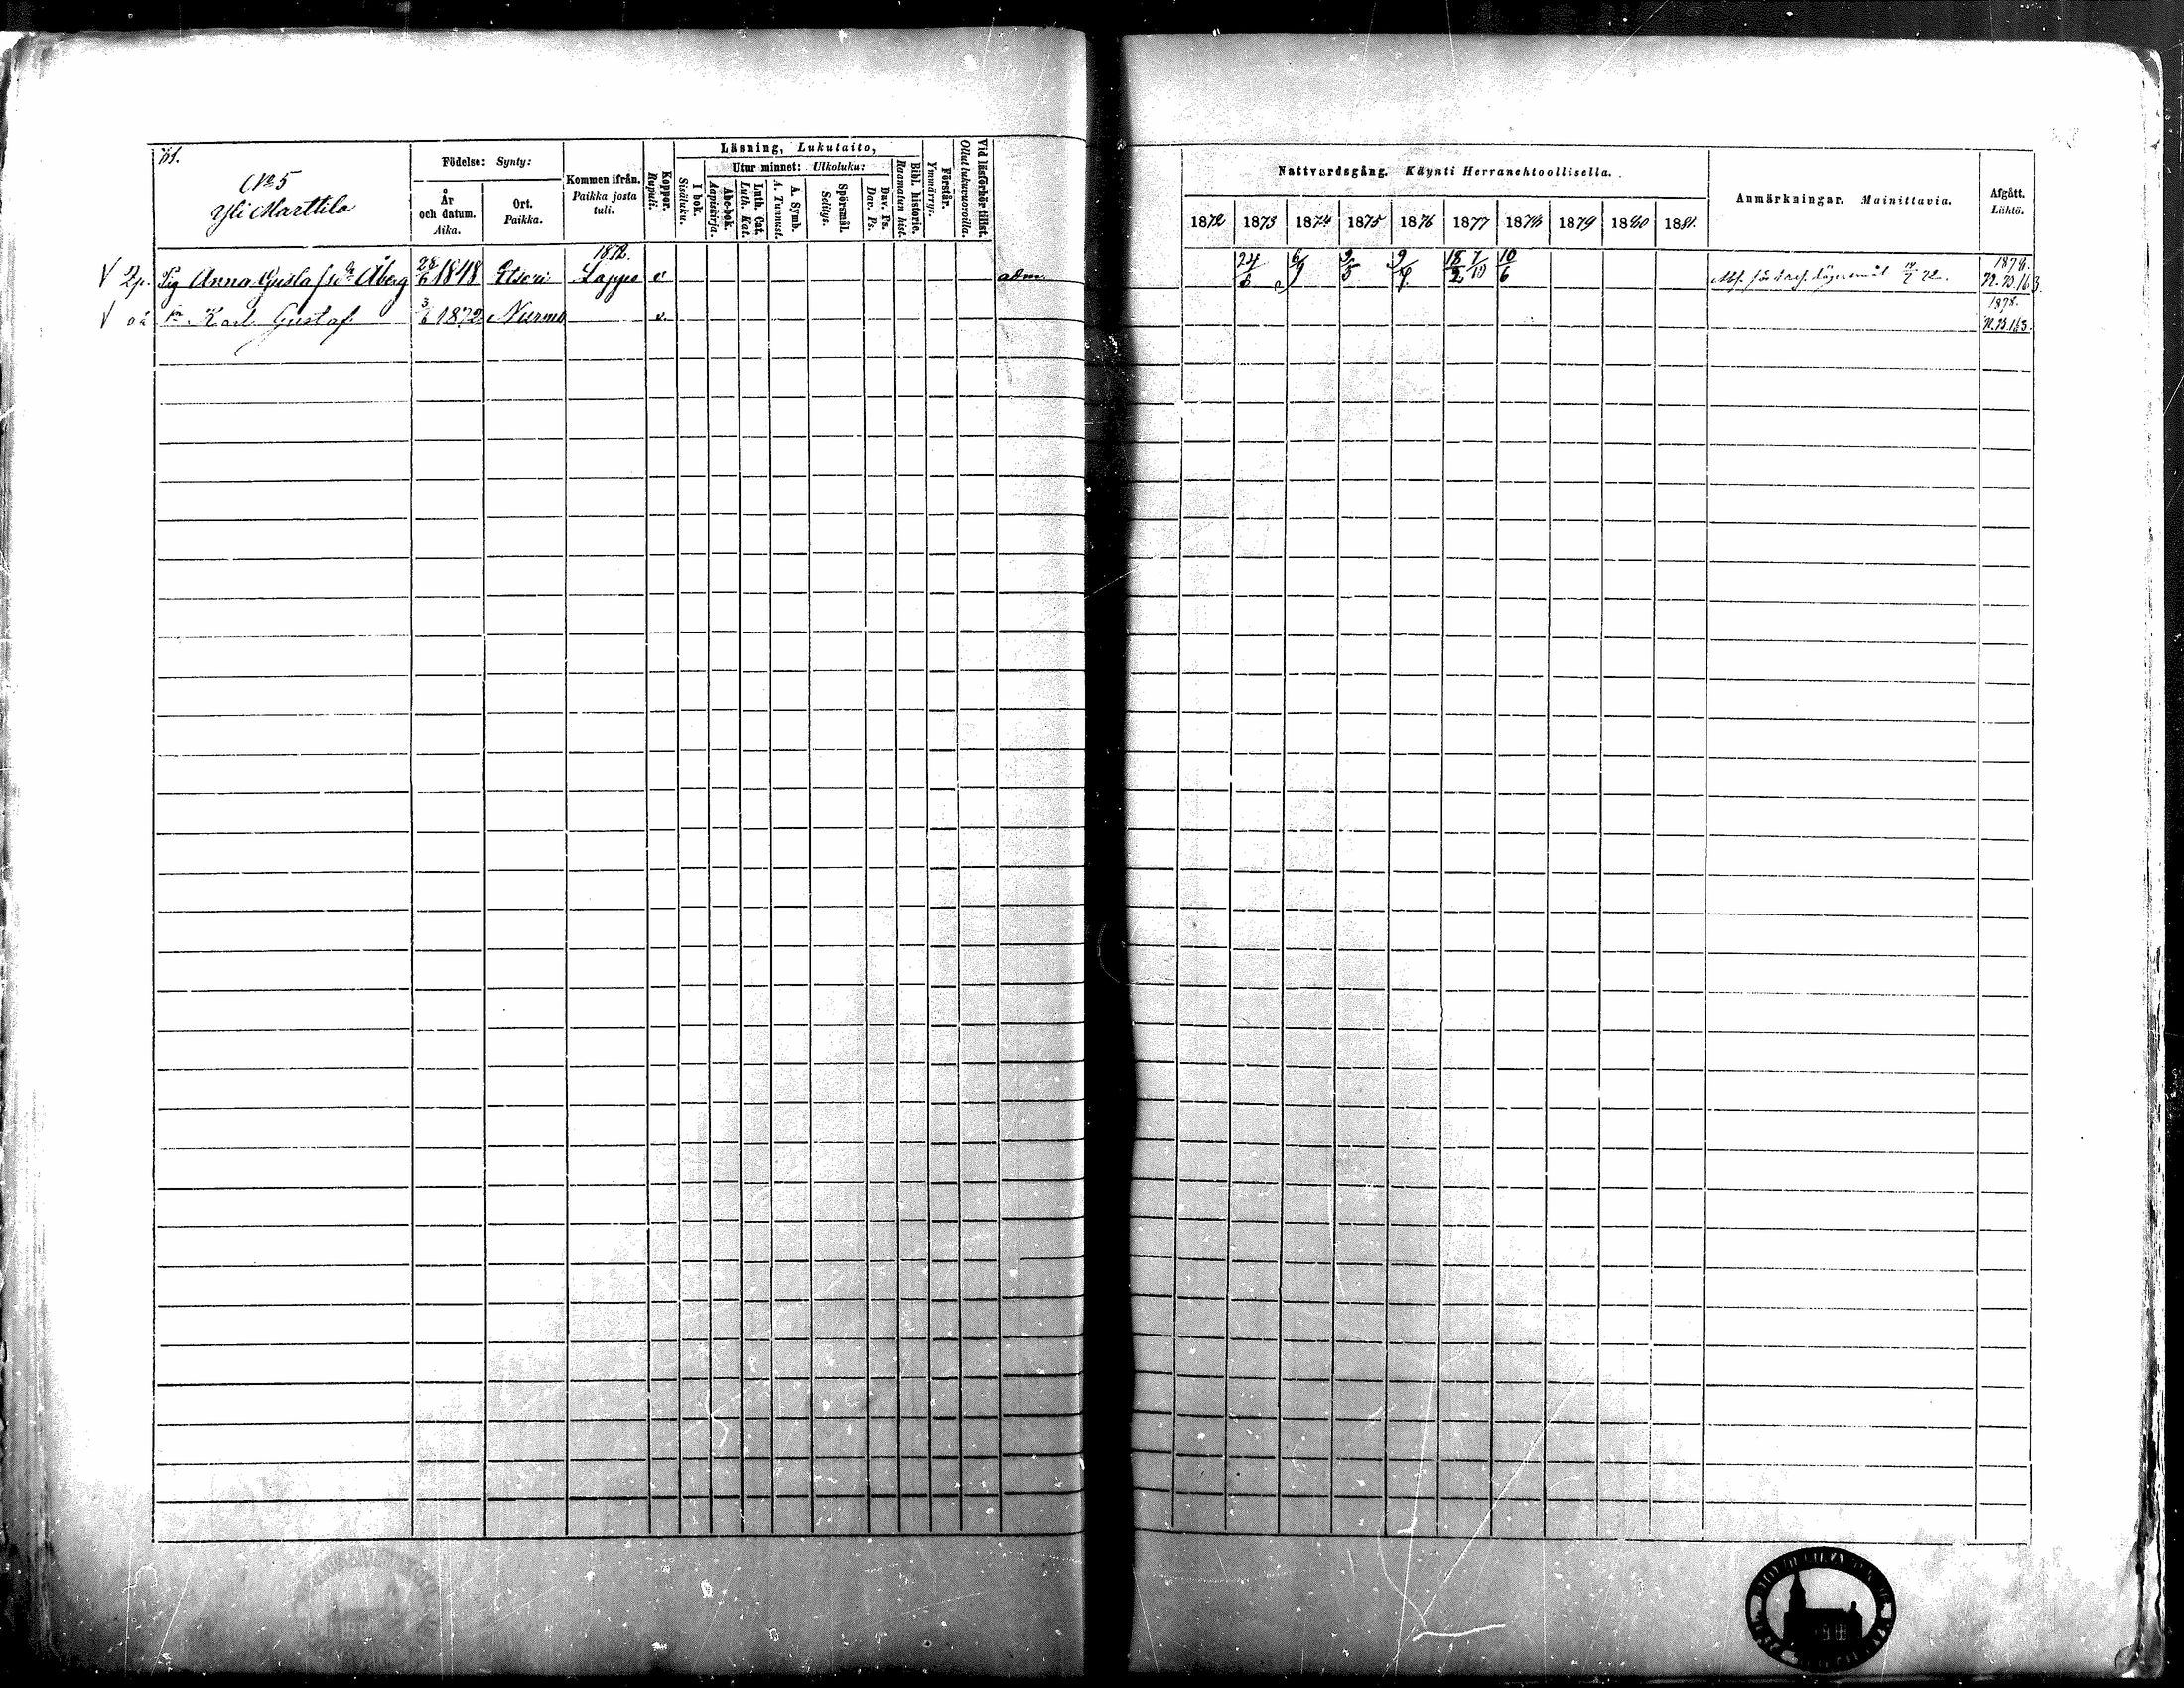 No 5
Yli Marttila
Födelse: Synty:
År och datum. Aika.
Ort. Paikka.
Kommen ifrån. Paikka josta tuli.
Koppor. Rupuli.
Läsning, Lukutaito,
I bok. Sisäluku.
Utur minnet: Ulkoluku:
Abc-bok. Aapiskirja.
Luth. Cat. Luth. Kat.
A. Symb. A. Tunnust.
Spörsmål. Selitys.
Dav. Ps. Dav. Ps.
Bibl. historie. Raamatun hist.
Förstår. Ymmärrys.
Vid läsförhör tillst. Ollut lukuvuoroilla.
Nattvardsgång. Käynti Herranehtoollisella.
1872 1873 1874 1875 1876 1877 1878 1879 1880 1881.
Anmärkningar. Mainittavia.
Afgått. Lähtö.
V 2p. Pig Anna Gustafsdr Åberg 28/6 1848 1872. Lappo v. adm. 24/ 6/9 18/2 7/10 10/6 1878.
V oä Karl Gustaf 3/6 1872 Nurmo v. 1878.